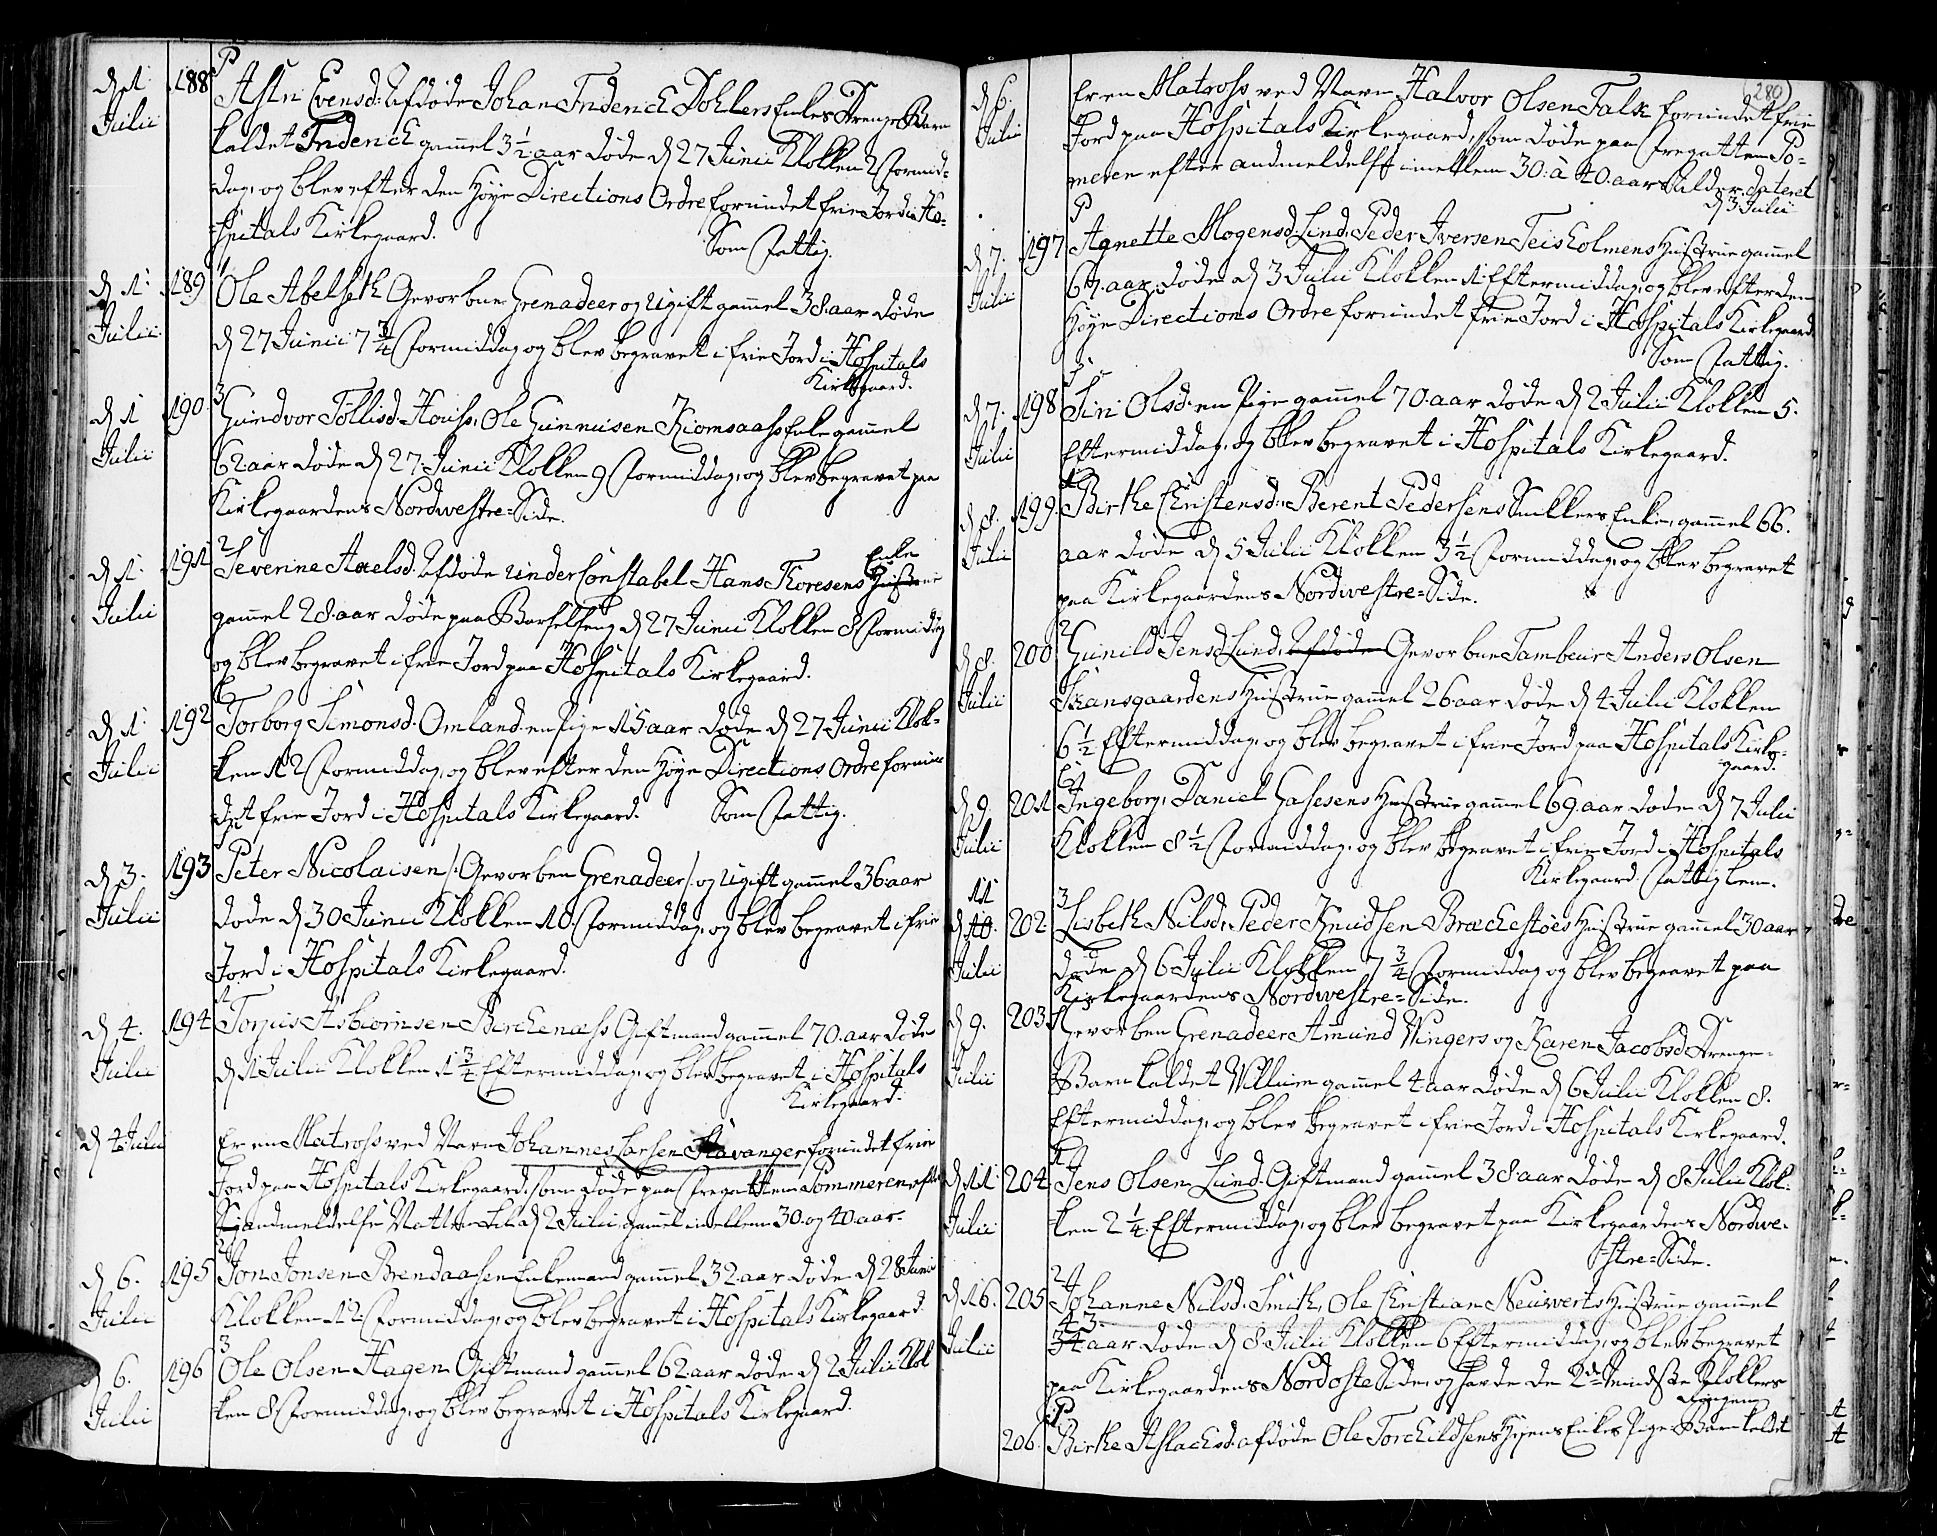 d 1 188 P Astri Evensd: Afdøde Johan Friderich Dohlers Enkes Drenge Barn
Julii kaldet Friderich gamel 3 1/2 aar døde d 27 Junii Klokken 2 Formid-
dag, og blev efter den Høye Directions Ordre forundet frie Jord i Ho-
spitals Kirkegaard. Som Fattig.
d 1. 189 1 Ole Abelseth Gevorben Grenadeer og Ugift gamel 38 aar døde
Julii d 27 Junii 7 3/4 Formiddag og blev begravet i frie Jord i Hospitals
Kirkegaard.
d 1 190 3 Gundvor Tollisd. Ole Gunnusen Enke gamel
Julii 62 aar døde d 27 Junii Klokken 9 Formiddag, og blev begravet paa
Kirkegaardens Nordwestre-Side.
Enke
d 1. 191 2 Severine Axelsd. Afdøde Under Constabel Hans Thoresens Hustrue
Julii gammel 28 aar døde paa Barselseng d 27 Junii Klokken 8 Formidag
og blev begravet i frie Jord paa Hospitals Kirkegaard.
d 1. 192 Torborg Simonsd. Omland en Pige 15 aar døde d 27 Junii Klok-
Julii ken 12 Formiddag, og blev efter den Høye Directions Ordre forun-
det frie Jord i Hospitals Kirkegaard. Som Fattig.
d 3. 193 Peter Nicolaisen /: Gevorben Grenadeer / og Ugift gamel 36 aar
Julii døde d 30 Junii Klokken 10 Formiddag, og blev begravet i frie
Jord i Hospitals Kirkegaard.
d 4. 194 1 Torjus Asbiørnsen Birchenæss Giftmand gamel 70 aar døde
Julii d 1 Julii Klokken 1 3/4 Eftermiddag, og blev begravet i Hospitals
Kirkegaard.
d 4 Julii Er en Matross ved Navn Johannes Larsen Stavanger forundet frie
Jord paa Hospitals Kirkegaard, som døde paa Fregatten Pommeren efter
andmeldelse Natten til d 2 Julii gamel imellem 30 og 40 aar.
d 6. 195 2 Jon Jonsen Brendaasen Enkemand gamel 32 aar døde d 28 Junii
Julii Klokken 12 Formiddag, og blev begravet i Hospitals Kirkegaard
d 6. 196 3 Ole Olsen Hagen Giftmand gamel 62 aar døde d 2 Julii Klok
Julii ken 8 Formiddag, og blev begravet i Hospitals Kirkegaard.
(280)
d 6. Er en Matross ved Navn Halvor Olsen Falk forundet frie
Julii Jord paa Hospitals Kirkegaard, som døde paa Fregatten Po-
meren efter andmeldelse imellem 30 à 40 aar Alder dateret
d 3 Julii
d 7. 197 P Agnette Mogensd. Lind, Peder Iversen Teisholmens Hustrue gamel
Julii 67 aar døde d 3 Julii Klokken 1 Eftermiddag, og blev efter den
Høye Directions Ordre forundet frie Jord i Hospitals Kirkegaard
Som Fattig.
d 7. 198 3 Siri Olsd. en Pige gamel 70 aar døde d 2 Julii Klokken 5.
Julii Eftermiddag, og blev begravet i Hospitals Kirkegaard.
d 8. 199 1 Birthe Christensd. Berent Pedersens Enke, gammel 66.
Julii aar døde d 5 Julii Klokken 3 1/2 Formiddag, og blev begravet
paa Kirkegaardens Nordwestre-Side.
d 8. 200 2 Gunild Jensd. Lund, Afdøde Gevorben Tambeur Anders Olsen
Julii Skansgaardens Hustrue gamel 26 aar døde d 4 Julii Klokken
6 1/2 Eftermiddag, og blev begravet i frie Jord paa Hospitals Kirke-
gaard.
d 9. 201 Ingeborg, Daniel Gasesens Hustrue gamel 69 aar døde d 7 Julii
Julii Klokken 8 1/2 Formiddag, og blev begravet i frie Jord i Hospitals
Kirkegaard. Fattig Lem.
11
d 10. 202 3 Lisbeth Nilsd. Peder Knudsen Brækkestøes Hustrue gamel 30 aar
Julii døde d 6 Julii Klokken 7 3/4 Formiddag og blev begravet paa
Kirkegaardens Nordwestre-Side.
d 9. 203 Gevorben Grenadeer Amund Wingers og Karen Jacobsd. Drenge-
Julii Barn kaldet Willum gamel 4 aar døde d 6 Julii Klokken 8.
Eftermiddag, og blev begravet i frie Jord i Hospitals Kirkegaard.
d 11. 204 1 Jens Olsen Lund Giftmand gamel 38 aar døde d 8 Julii Klok-
Julii ken 2 1/4 Eftermiddag, og blev begravet paa Kirkegaardens Nordwe-
stre-Side.
d 16. 205 2 Johanne Nilsd. Smith, Ole Christian Neuwerts Hustrue gammel
43.
Julii 34 aar døde d 8 Julii Klokken 6 Eftermiddag, og blev begravet
paa Kirkegaardens Nordoste Side, og havde de 2de mindste Klokker
206. P Birthe Aslachsd. afdøde Ole Torchildsens Enkes Pige-Barn kaldet